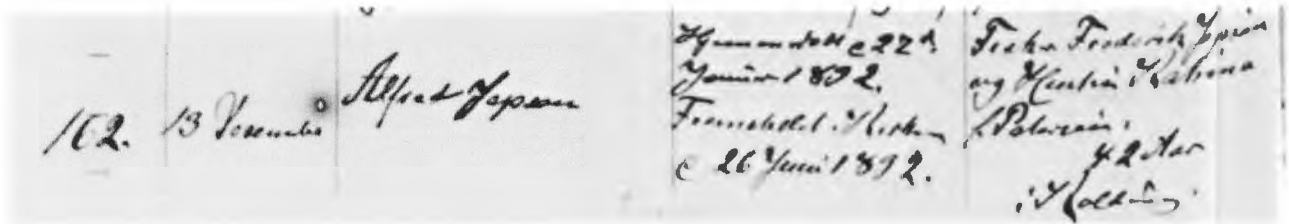 102.
13 December
Alfred Jepsen
Hjemmedøbt d. 22d
Januar 1892.
Fremstillet i Kirken
d 26 Juni 1892.
Frederik Jepsen
og Hustru Katrine
f. Petersen.
42 Aar
i Kolding